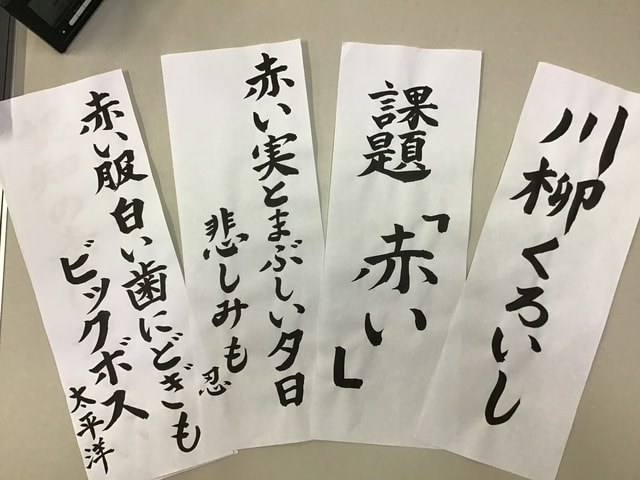 川柳くろいし
課題「赤い」
赤い実とまぶしい夕日
悲しみも
忍
赤い服白い歯にどぎも
ビックボス
太平洋